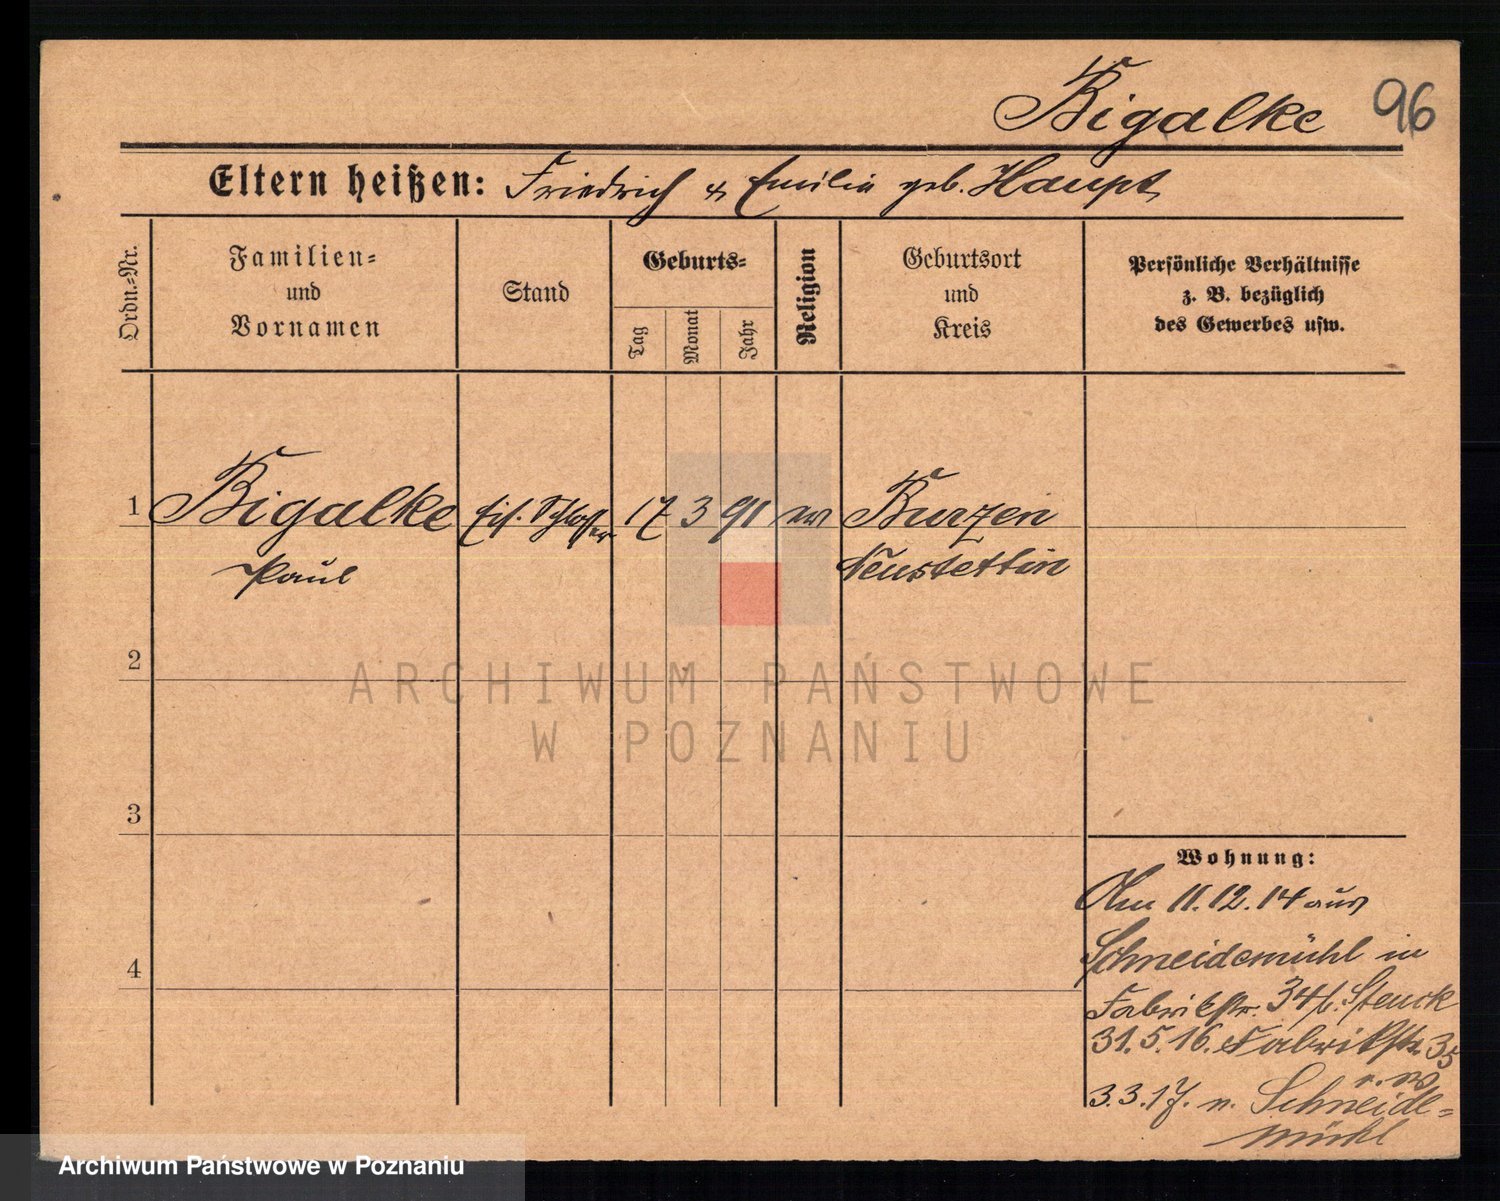 Bigalke 96
Eltern heißen: Friedrich & Emilie geb. Haupt
Ordn.-Nr.
Familien-
und
Vornamen
Stand
Geburts-
Tag
Monat
Jahr
Religion
Geburtsort
und
Kreis
Persönliche Verhältnisse
z. B. bezüglich
des Gewerbes usw.
1 Bigalke Eis. Schlosser 17 3 91 ev Burzen
Paul Neustettin
2
3
4
Wohnung:
Am 11.12.14 aus
Schneidemühl in
Fabrikstr. 34 b. Stenck
31.5.16. Fabrikstr. 35
3.3.17. n. Schneide-
mühl
ARCHIWUM PAŃSTWOWE
W POZNANIU
Archiwum Państwowe w Poznaniu